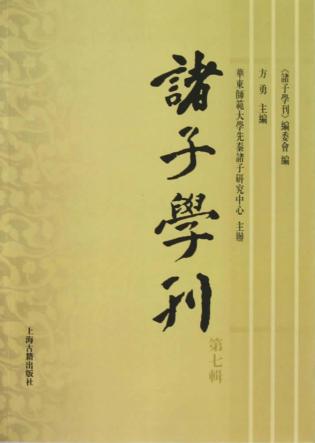 《諸子學刊》編委會 編
方勇 主編
華東師範大學先秦諸子研究中心 主辦
諸子學刊
第七輯
上海古籍出版社